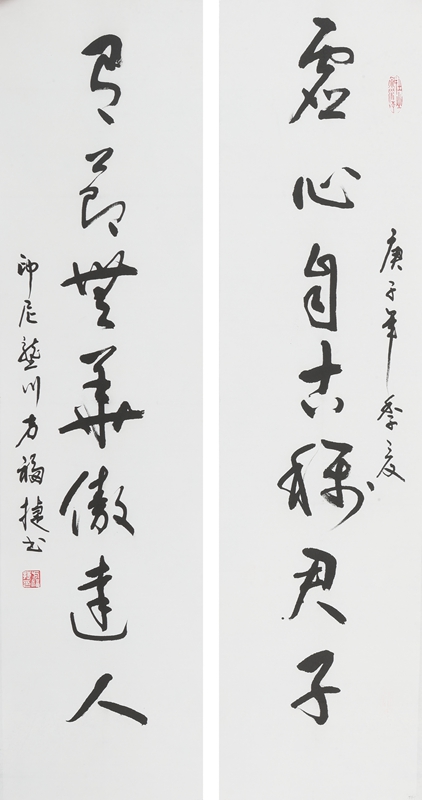 庚子年季夏
虛心自古稱君子
有節無華傲達人
印尼壟川方福捷书